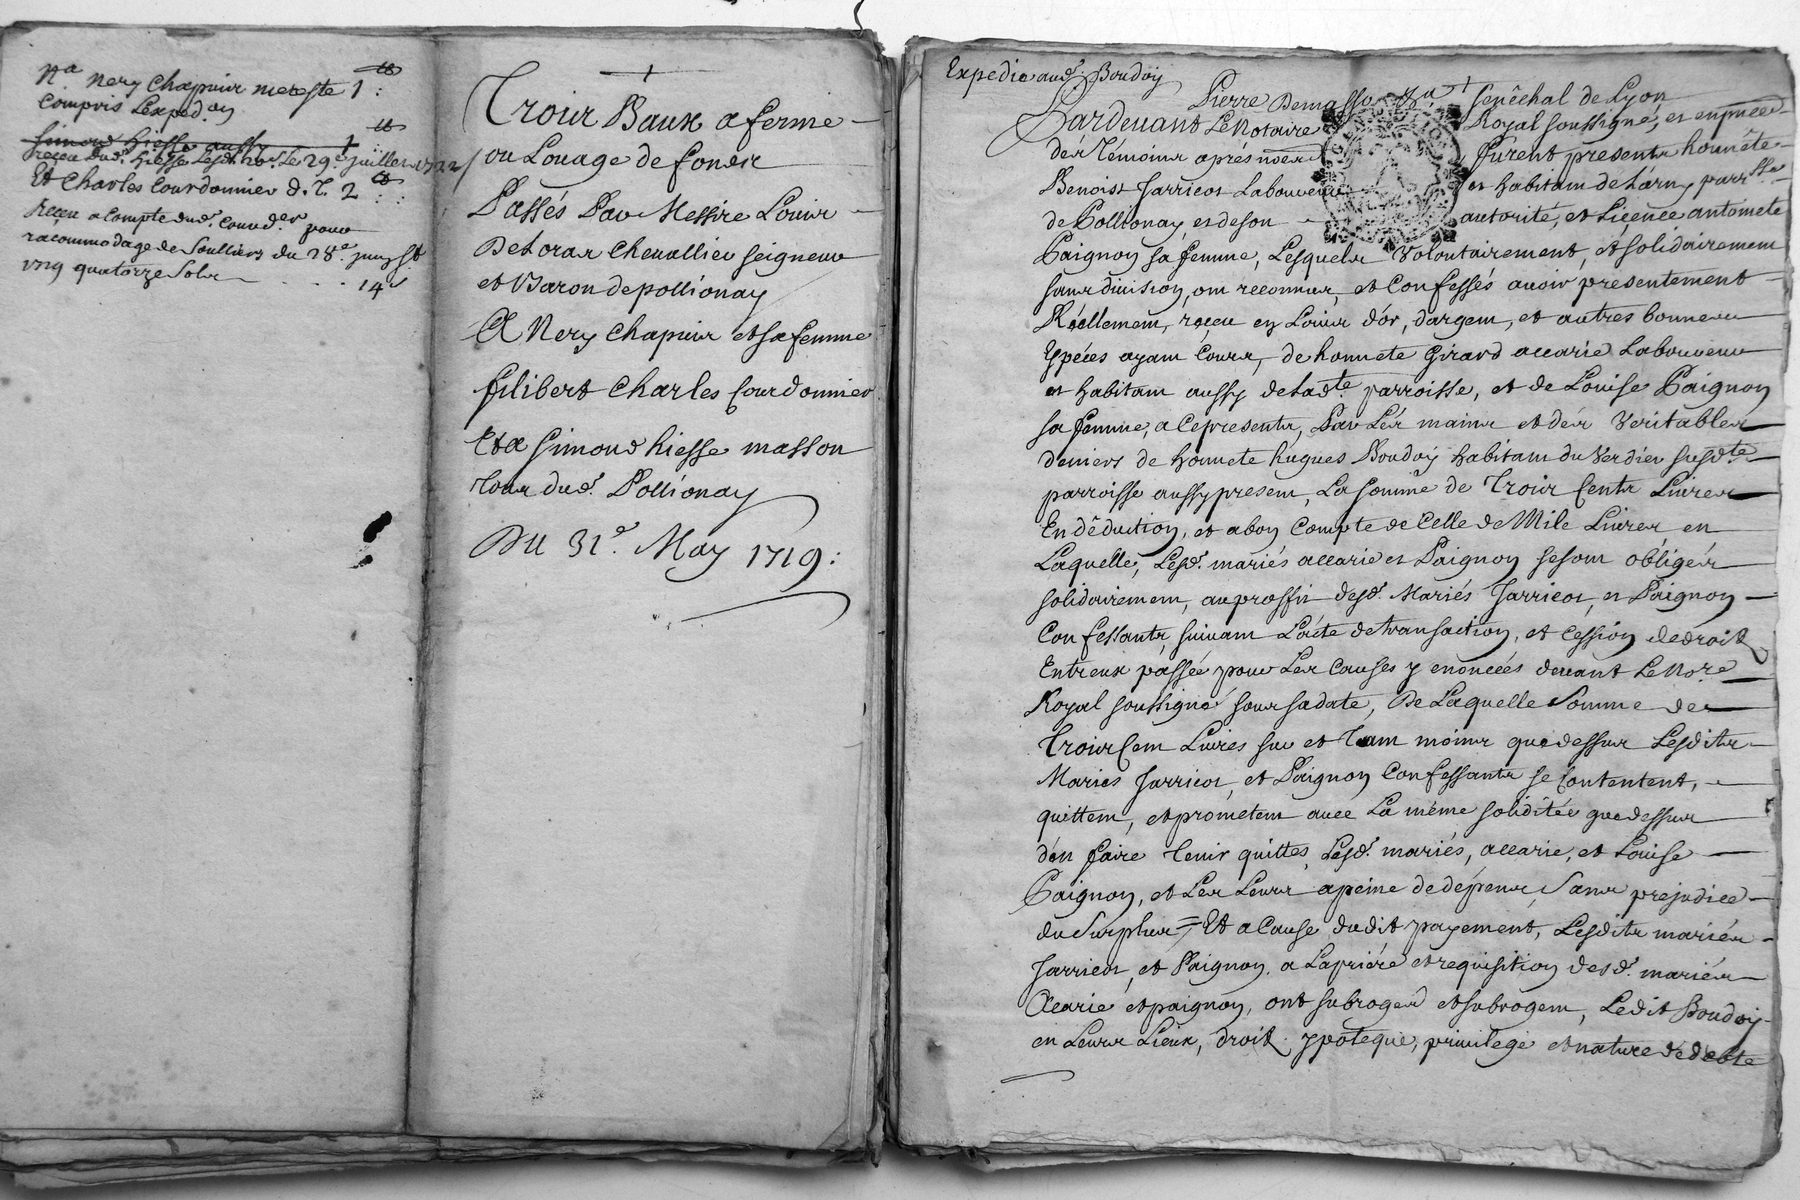 Na nery Chapuir me reste 1 ₶ :
Compris L'exped.on
Simond hiesse aussy 1 ₶
receu dud. hiesse lesd. 20s. le 29e juillet 1722 /
Et Charles Courdonnier d. t. 2 ₶
Receu a compte dud. Courd.er pour
racommodage de Soulliers du 28e. juin
1719 quatorze Sols 14 s
Troir Baux a ferme
ou Louage de fondr
Passés Par Messire Louir
Delorar Chevallier seigneur
et Baron de pollionay
A Nery Chapuir et sa femme
filibert Charles Courdonnier
Et a Simond hiesse masson
tour dud. Pollionay
Du 31e. May 1719 :
Expedié aud. Boudoy
Pierre Senêchal de Lyon
Pardevant Le Notaire Royal soussigné, et en pñce
der témoinr aprés furent presentr honnête
Benoist Jarricot Laboureur et habitant de parrsse
de Pollionay, et de son autorité, et Liçence
Paignon sa femme, Lesquelr Volontairement, et solidairement
sanr division, ont reconnur, et Confessés avoir presentement
Réellement, reçeu en Louir d'or, dargent, et autres bonner
Espéces ayant Courr, de honnete Girard accarie Laboureur
et habitant aussy de lad.te parroisse, et de Louise Paignon
sa femme, a ce presentr, Par Lér mainr et dér Veritabler
deniers de honnete hugues Boudoy habitant du Verdier susd.te
parroisse aussy present, La somme de Troir Centr Livrer
En déduction, et a bon Compte de Celle de Mile Livrer en
Laquelle, Lesd. mariés accarie et Paignon se sont obligér
solidairement, au proffit desd. Mariés Jarricot, et Paignon
Confessantr, suivant L'acte de transaction, et Cession de droit
Entreux passée pour Ler Causes y enoncées devant Le Nore
Royal soussigné sour sa date, De Laquelle Somme de
Troir Cent Livres sur et tant moinr que dessur Lesditr
Mariés Jarricot, et Paignon Confessantr se Contentent,
quittent, et prometent avec La même soliditée que dessur
d'en faire tenir quittes, Lesd. mariés, accarie, et Louise
Paignon, et Ler Leurr a peine de dépenr, Sanr prejudice
du Surplur = Et a Cause dudit payement, Lesditr mariér
Jarricot, et Paignon, a La priére et requisition desd. mariér
Accarie et paignon, ont subroger et subrogent, Ledit Boudoy
en Leurr Lieux, droit ypoteque, privilege et nature de debte